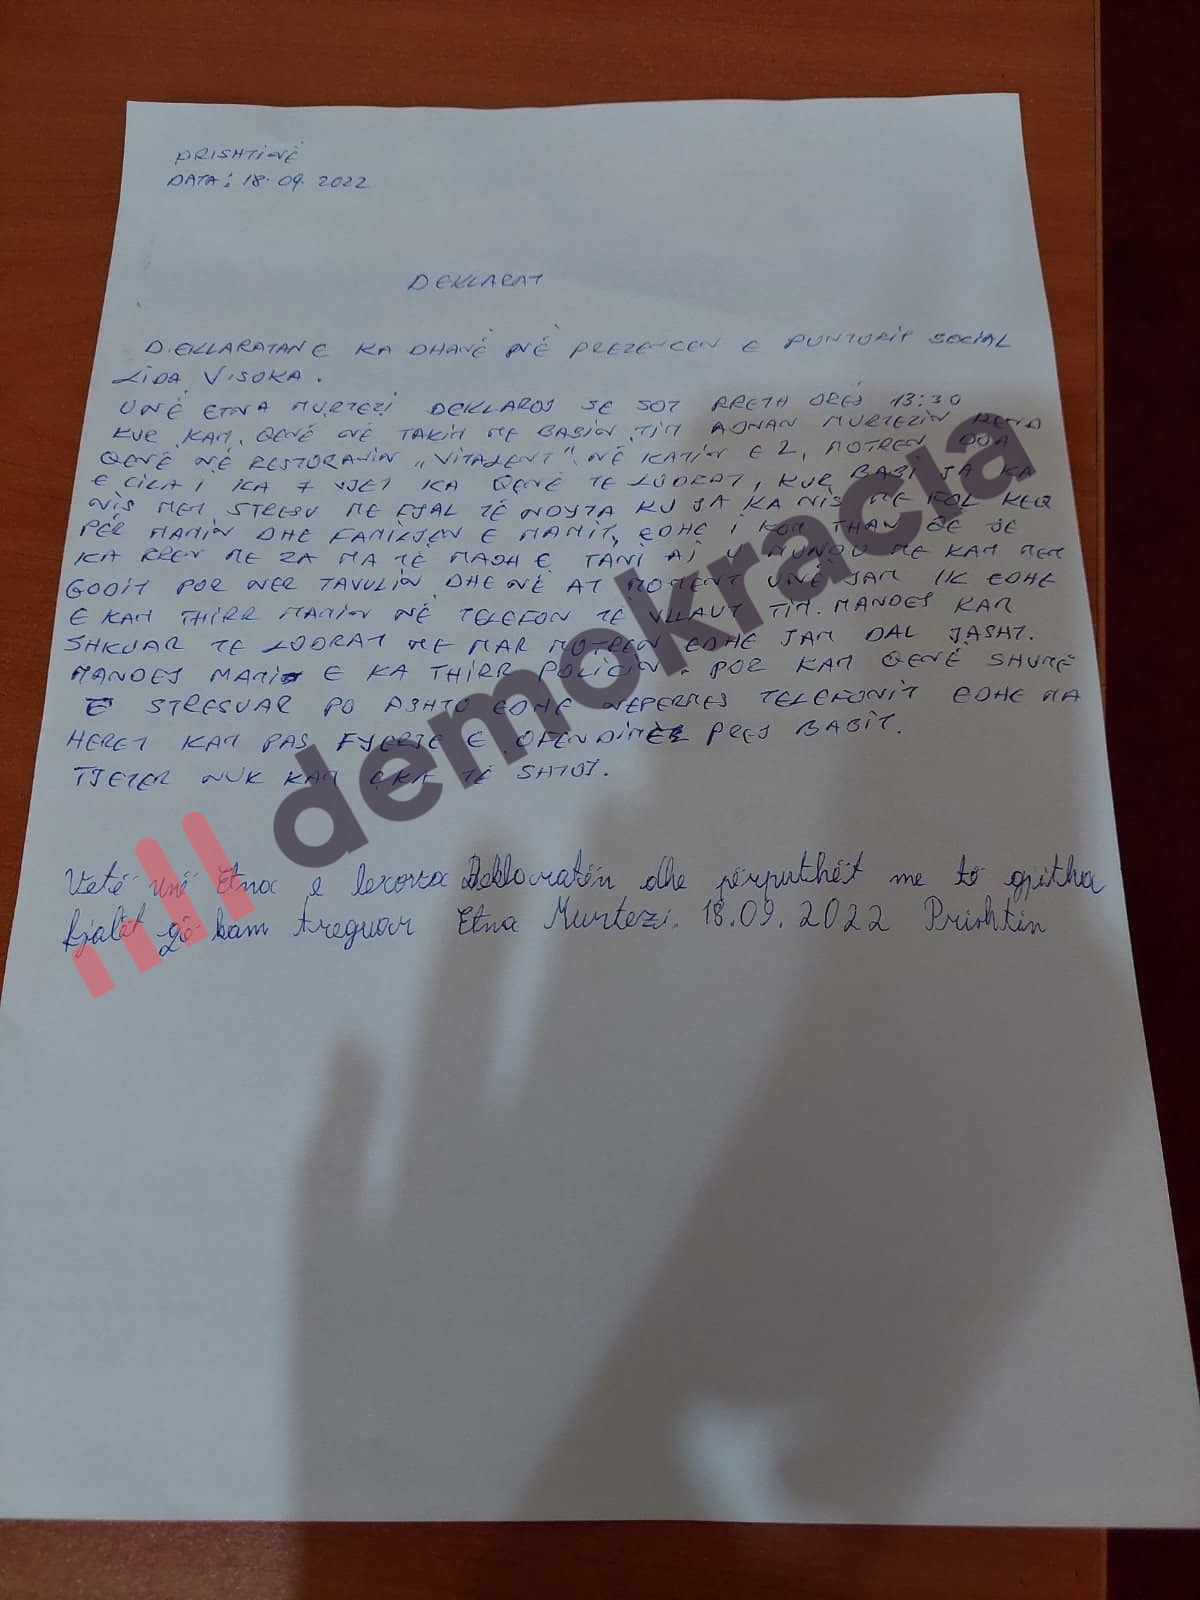 PRISHTINË
DATA: 18.09.2022
DEKLARAT
DEKLARATAN E KA DHANË NË PREZENCEN E PUNTORIT SOCIAL
LIDA VISOKA.
UNË ETNA MURTEZI DEKLAROJ SE SOT RRETH ORËS 13:30
KUR KAM QENË NË TAKIM ME BABIN TIM ADNAN MURTEZIN
QENË NË RESTORANIN „VITALENT" NË KATIN E 2, MOTREN
E CILA I KA 7 VJET KA QENË TE LODRAT, KUR BABI JA KA
NIS MEM STRESU ME FJAL TË NDYTA KU JA KA NIS ME FOL KEQ
PËR MAMIN DHE FAMILJEN E MAMIT, EDHE I KOM THAN QE JE
KA RREN ME ZA MA TË MADH E TANI AI U MUNDU ME KAM MEM
GODIT POR NER TAVULIN DHE NË AT MOMENT UNË JAM IK EDHE
E KAM THIRR MAMIN NË TELEFON TE VLLAUT TIM. MANDEJ KAM
SHKUAR TE LODRAT ME MAR MOTREN EDHE JAM DAL JASHT.
MANDEJ MAMI E KA THIRR POLICIN. POR KAM QENË SHUMË
E STRESUAR PO ASHTU EDHE NEPERMES TELEFONIT EDHE MA
HERET KAM PAS FYERJE E OFENDIME PREJ BABIT.
TJETER NUK KAM ÇKA TË SHTOJ.
Vetë unë Etna e lexova Deklaratën dhe përputhët me të gjitha
fjalët që kam treguar Etna Murtezi. 18.09.2022 Prishtin
demokracia